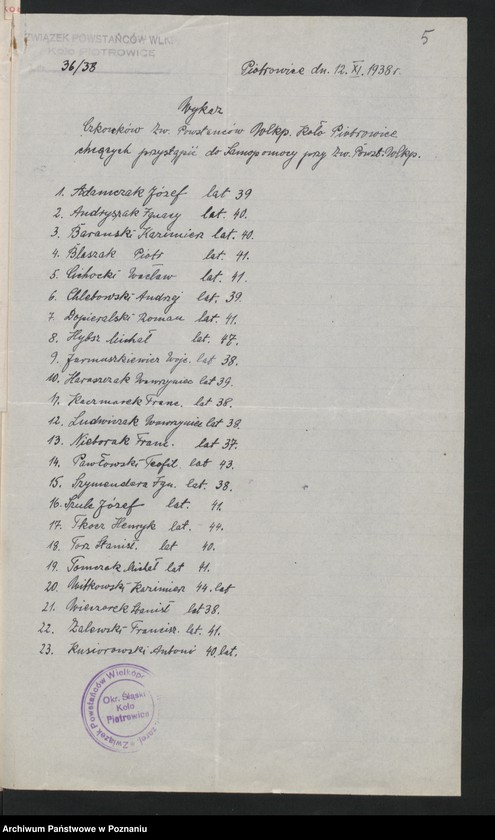 ZWIĄZEK POWSTAŃCÓW WLKP.
KOŁO PIOTROWICE
36/38
5
Piotrowice dn. 12. XI. 1938 r.
Wykaz
Członków Zw. Powstańców Wlkp. Koło Piotrowice
chcących przystąpić do Samopomocy przy Zw. Powst. Wlkp.
1. Adamczak Józef lat 39
2. Andryszak Ignacy lat. 40.
3. Barański Kazimierz lat. 40.
4. Błaszak Piotr lat. 41.
5. Cichocki Wacław lat. 41.
6. Chlebowski Andrzej lat. 39.
7. Dopieralski Roman lat. 41.
8. Hybsz Michał lat. 47.
9. Jarmuszkiewicz Wojc. lat 38.
10. Haraszczak Wawrzyniec lat 39.
11. Kaczmarek Franc. lat 38.
12. Ludwiczak Wawrzyniec lat 38.
13. Nieborak Franc. lat 37.
14. Pawłowski Teofil lat 43.
15. Szymendera Ign. lat. 38.
16. Szulc Józef lat. 41.
17. Tkocz Henryk lat. 44.
18. Torz Stanisł. lat 40.
19. Tomczak Michał lat 41.
20. Witkowski Kazimierz 44. lat
21. Wieczorek Stanisł lat 38.
22. Zalewski Francisz. lat. 41.
23. Kusiorowski Antoni 40. lat.
Związek Powstańców Wielkopol
Okr. Śląski
Koło
Piotrowice
Archiwum Państwowe w Poznaniu